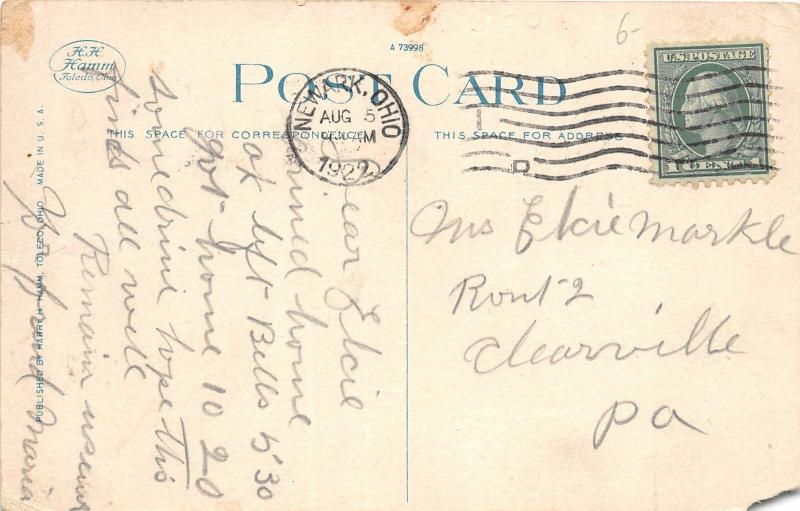 6-
A 73998
H.H.
Hamm
Toledo, Ohio
POST CARD
THIS SPACE FOR CORRESPONDENCE
THIS SPACE FOR ADDRESS
NEWARK, OHIO
AUG 5
AM
1922
U.S. POSTAGE
1 CENT 1
Dear Elcie
arrived home
ok left Bells 5'30
got home 10 20
hope this
finds all well
Remain
Maria
Ms Elcie Markle
Rout 2
Clearville
Pa
PUBLISHED BY HARRY H. HAMM, TOLEDO, OHIO. MADE IN U.S.A.